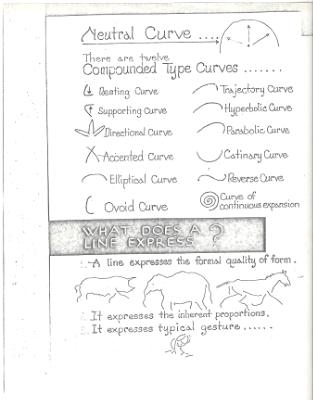 Neutral Curve ....
There are twelve
Compounded Type Curves .......
Resting Curve
Trajectory Curve
Supporting Curve
Hyperbolic Curve
Directional Curve
Parabolic Curve
Accented Curve
Catinary Curve
Elliptical Curve
Reverse Curve
Ovoid Curve
Curve of
continuous expansion
WHAT DOES A
LINE EXPRESS ?
A line expresses the formal quality of form.
It expresses the inherent proportions.
It expresses typical gesture ......